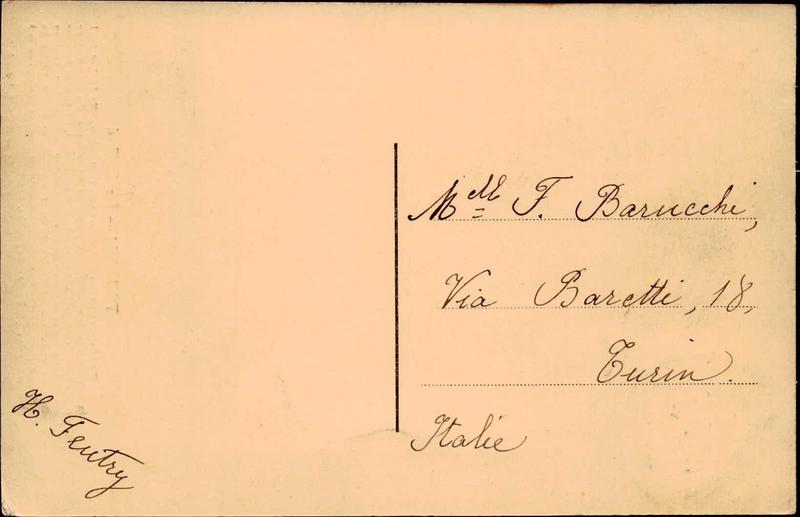 H. Feutry
Mell F. Barucchi,
Via Baretti, 18,
Turin.
Italie